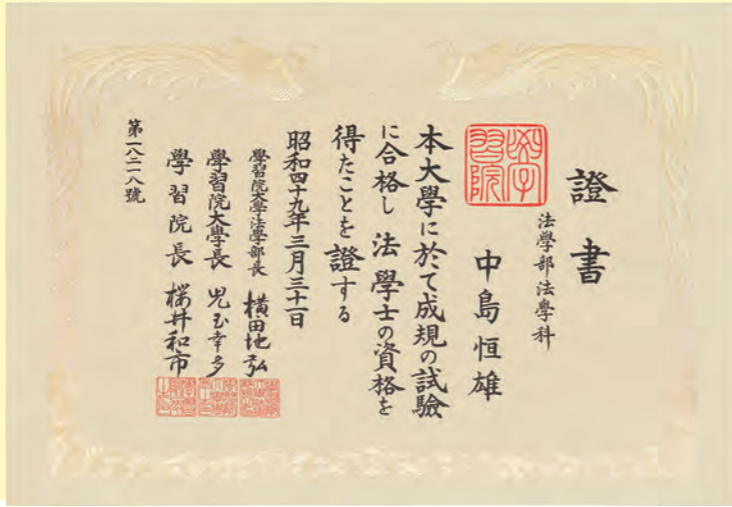 證書
法學部法學科
中島恒雄
學習院
本大學に於て成規の試驗
に合格し法學士の資格を
得たことを證する
昭和四十九年三月三十一日
學習院大學法學部長 横田地弘
學習院大學長 児玉幸多
學習院長 櫻井和市
第一八二一八號